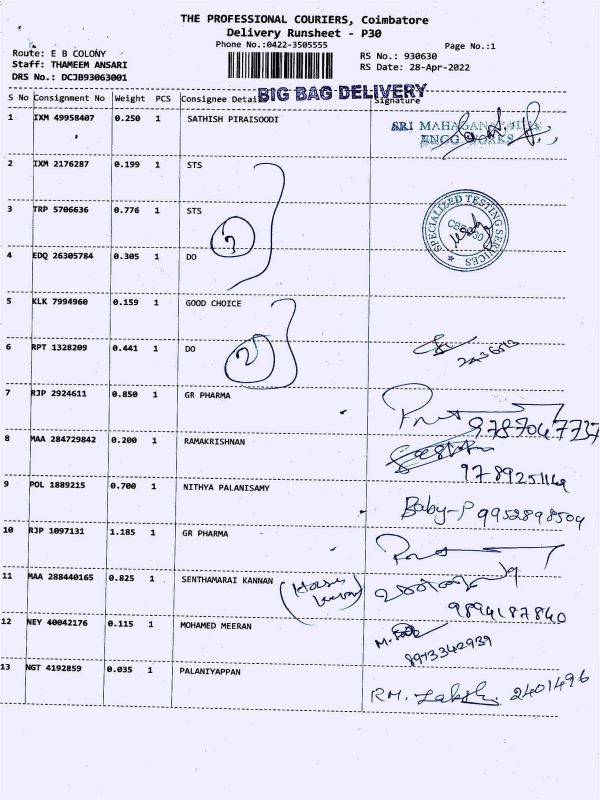 THE PROFESSIONAL COURIERS, Coimbatore
Delivery Runsheet - P30
Phone No.:0422-3505555
Page No.:1
Route: E B COLONY
Staff: THAMEEM ANSARI
DRS No.: DCJB93063001
RS No.: 930630
RS Date: 28-Apr-2022
BIG BAG DELIVERY
S No Consignment No Weight PCS Consignee Detai Signature
1 IXM 49958407 0.250 1 SATHISH PIRAISOODI
SRI MAHAGANAPATHY
ENGG WORKS
2 IXM 2176287 0.199 1 STS
3 TRP 5706636 0.776 1 STS
SPECIALIZED TESTING SERVICES
3
4 EDQ 26305784 0.305 1 DO
5 KLK 7994960 0.159 1 GOOD CHOICE
6 RPT 1328209 0.441 1 DO
2
7 RJP 2924611 0.850 1 GR PHARMA
9787047737
8 MAA 284729842 0.200 1 RAMAKRISHNAN
9789251169
9 POL 1889215 0.700 1 NITHYA PALANISAMY
Baby-P 9952898504
10 RJP 1097131 1.185 1 GR PHARMA
11 MAA 288440165 0.825 1 SENTHAMARAI KANNAN
9894187840
12 NEY 40042176 0.115 1 MOHAMED MEERAN
8973342939
13 NGT 4192859 0.035 1 PALANIYAPPAN
RM. 2401496